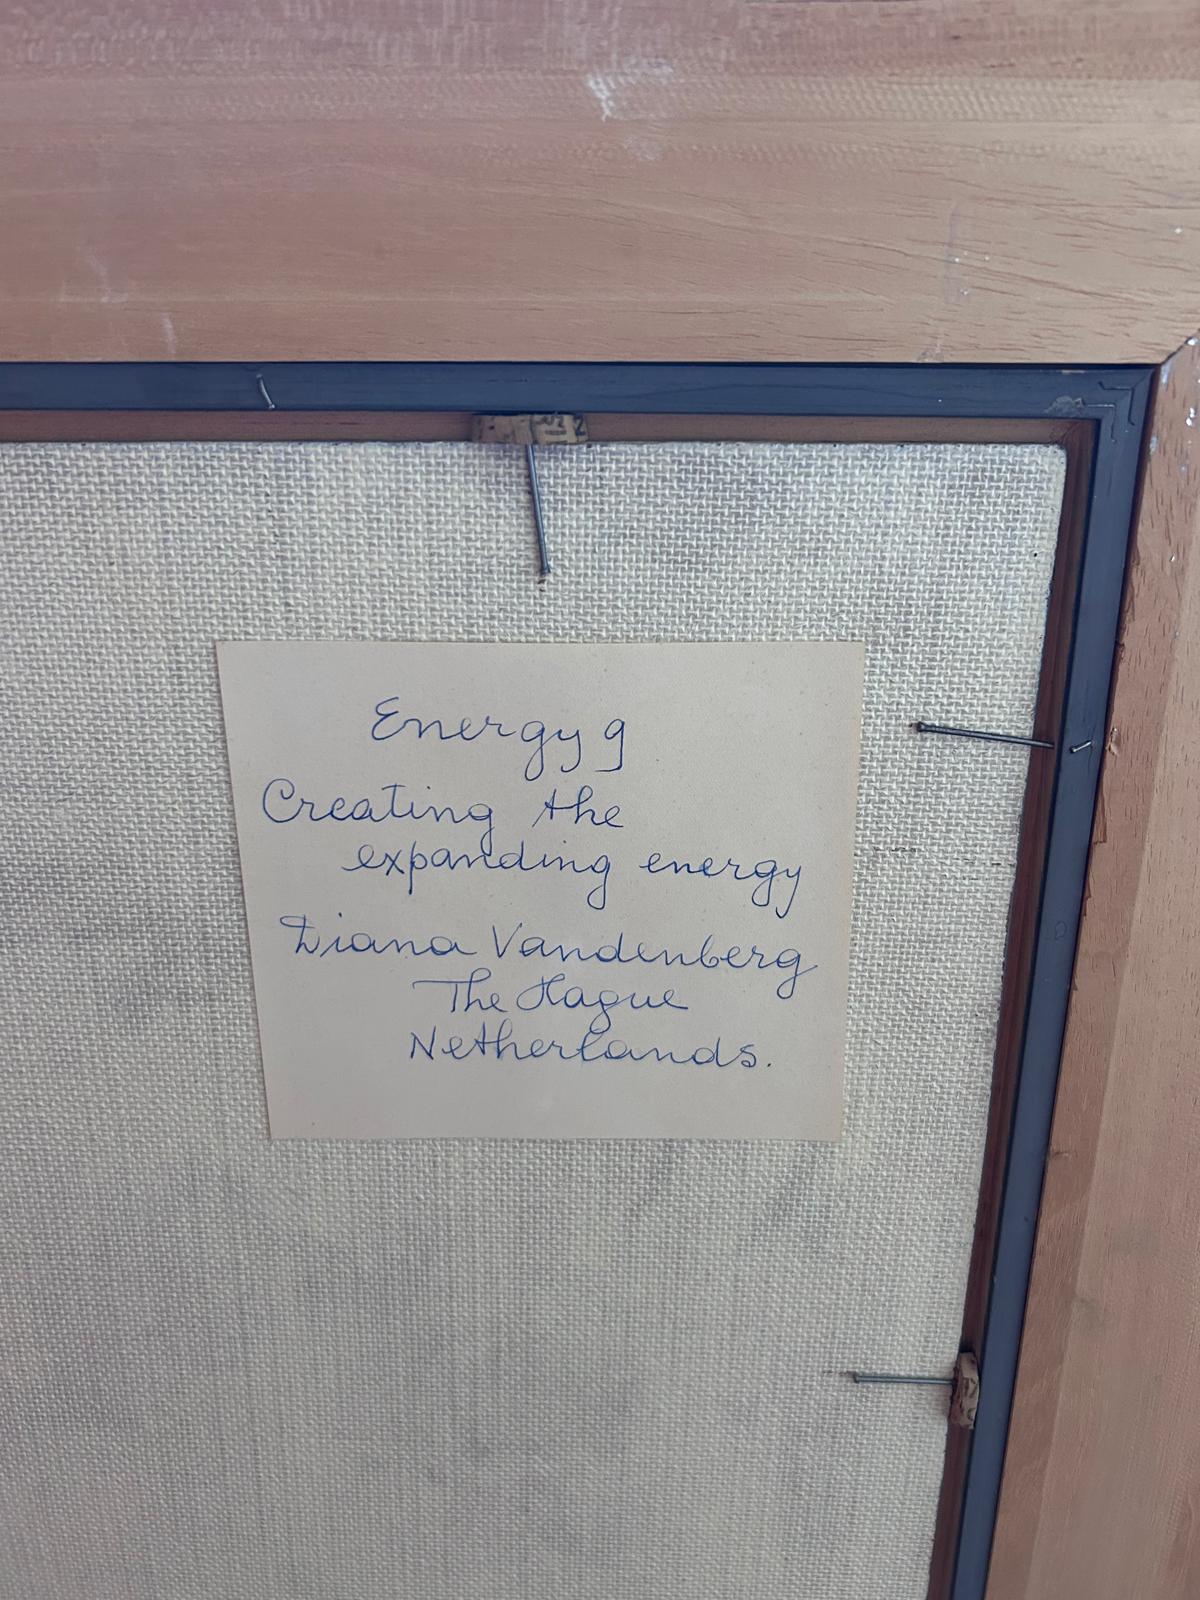 Energy 9
Creating the
expanding energy
Diana Vandenberg
The Hague
Netherlands.